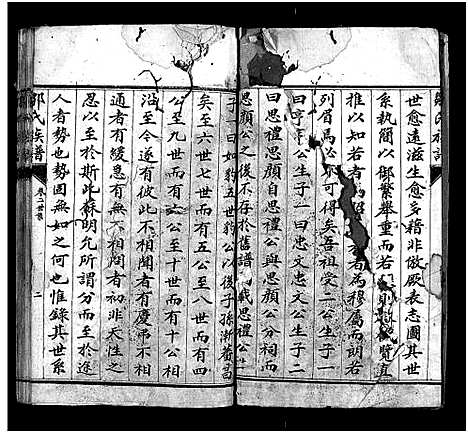 世愈遠滋生愈多藉非倣厥表志圖其世
系執簡以御繁舉重而若則覽直
推以知若者為若者為穆屬而明若
列眉焉不可得矣吾祖受二公生子一
曰亨亨公生子一曰思文忠文公生子二
曰思禮思顏自思禮公與思顏公分祠而
思顏公之後不存於舊譜我思禮公
子一曰如豹五世豹公以後子孫漸蕃昌
矣至六世七世而有五公至八世而有四
公至九世而有六公至十世而有十公相
沿至今遂有彼此不相聞者有慶弔不相
通者有緩急有無不相周者初非天性之
忍以至於斯此蘇明允所謂分而至於途
人者勢也勢固無如之何也惟錄其世系
鄒氏族譜
卷二世系
二